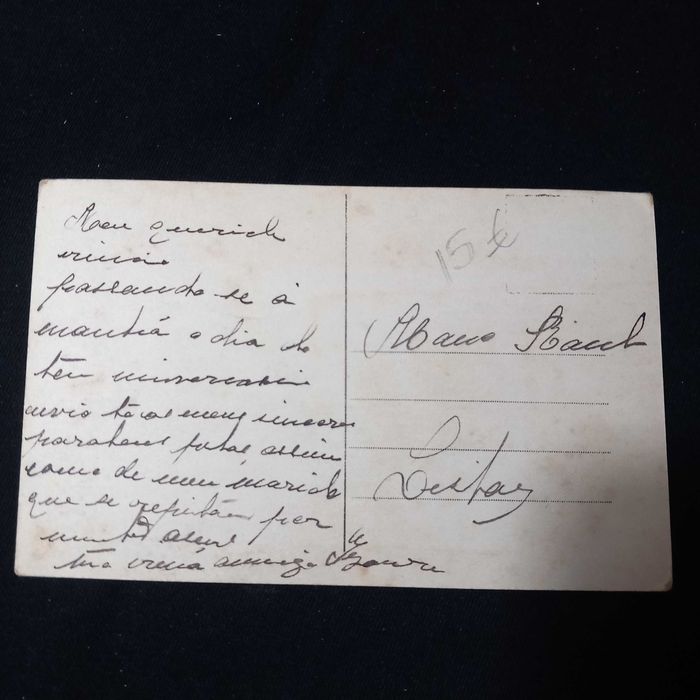 Meu querido
irmão
passando-se á
manhã o dia do
teu aniversario
envio te os meus sinceros
parabens
como de meu marido
que se repitam por
muitos
tua irmã amiga
15€
Lisboa